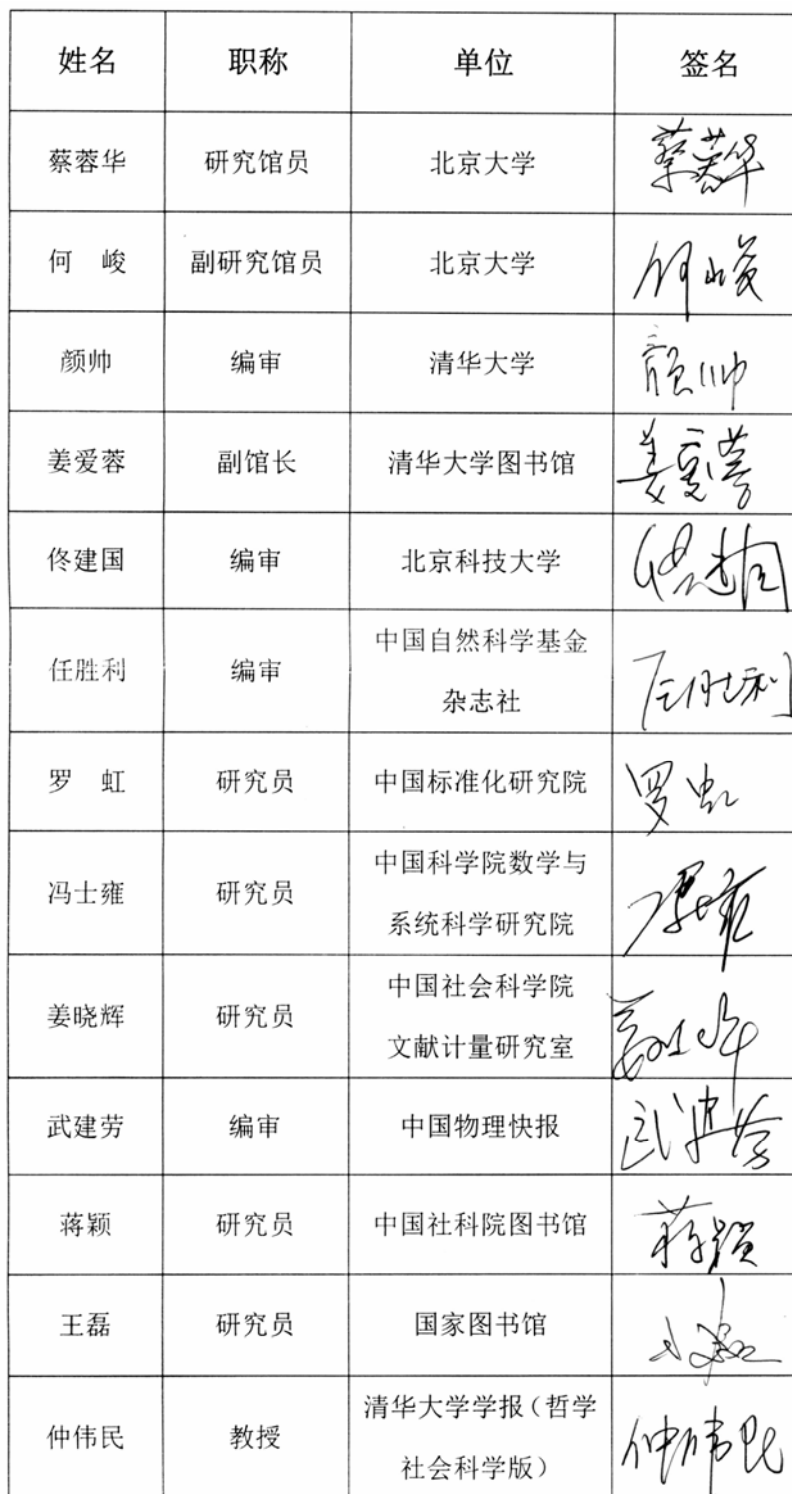 姓名 职称 单位 签名
蔡蓉华 研究馆员 北京大学 蔡蓉华
何　峻 副研究馆员 北京大学 何峻
颜帅 编审 清华大学 颜帅
姜爱蓉 副馆长 清华大学图书馆 姜爱蓉
佟建国 编审 北京科技大学 佟建国
任胜利 编审 中国自然科学基金
杂志社 任胜利
罗　虹 研究员 中国标准化研究院 罗虹
冯士雍 研究员 中国科学院数学与
系统科学研究院 冯士雍
姜晓辉 研究员 中国社会科学院
文献计量研究室 姜晓辉
武建劳 编审 中国物理快报 武建劳
蒋颖 研究员 中国社科院图书馆 蒋颖
王磊 研究员 国家图书馆
仲伟民 教授 清华大学学报（哲学
社会科学版） 仲伟民